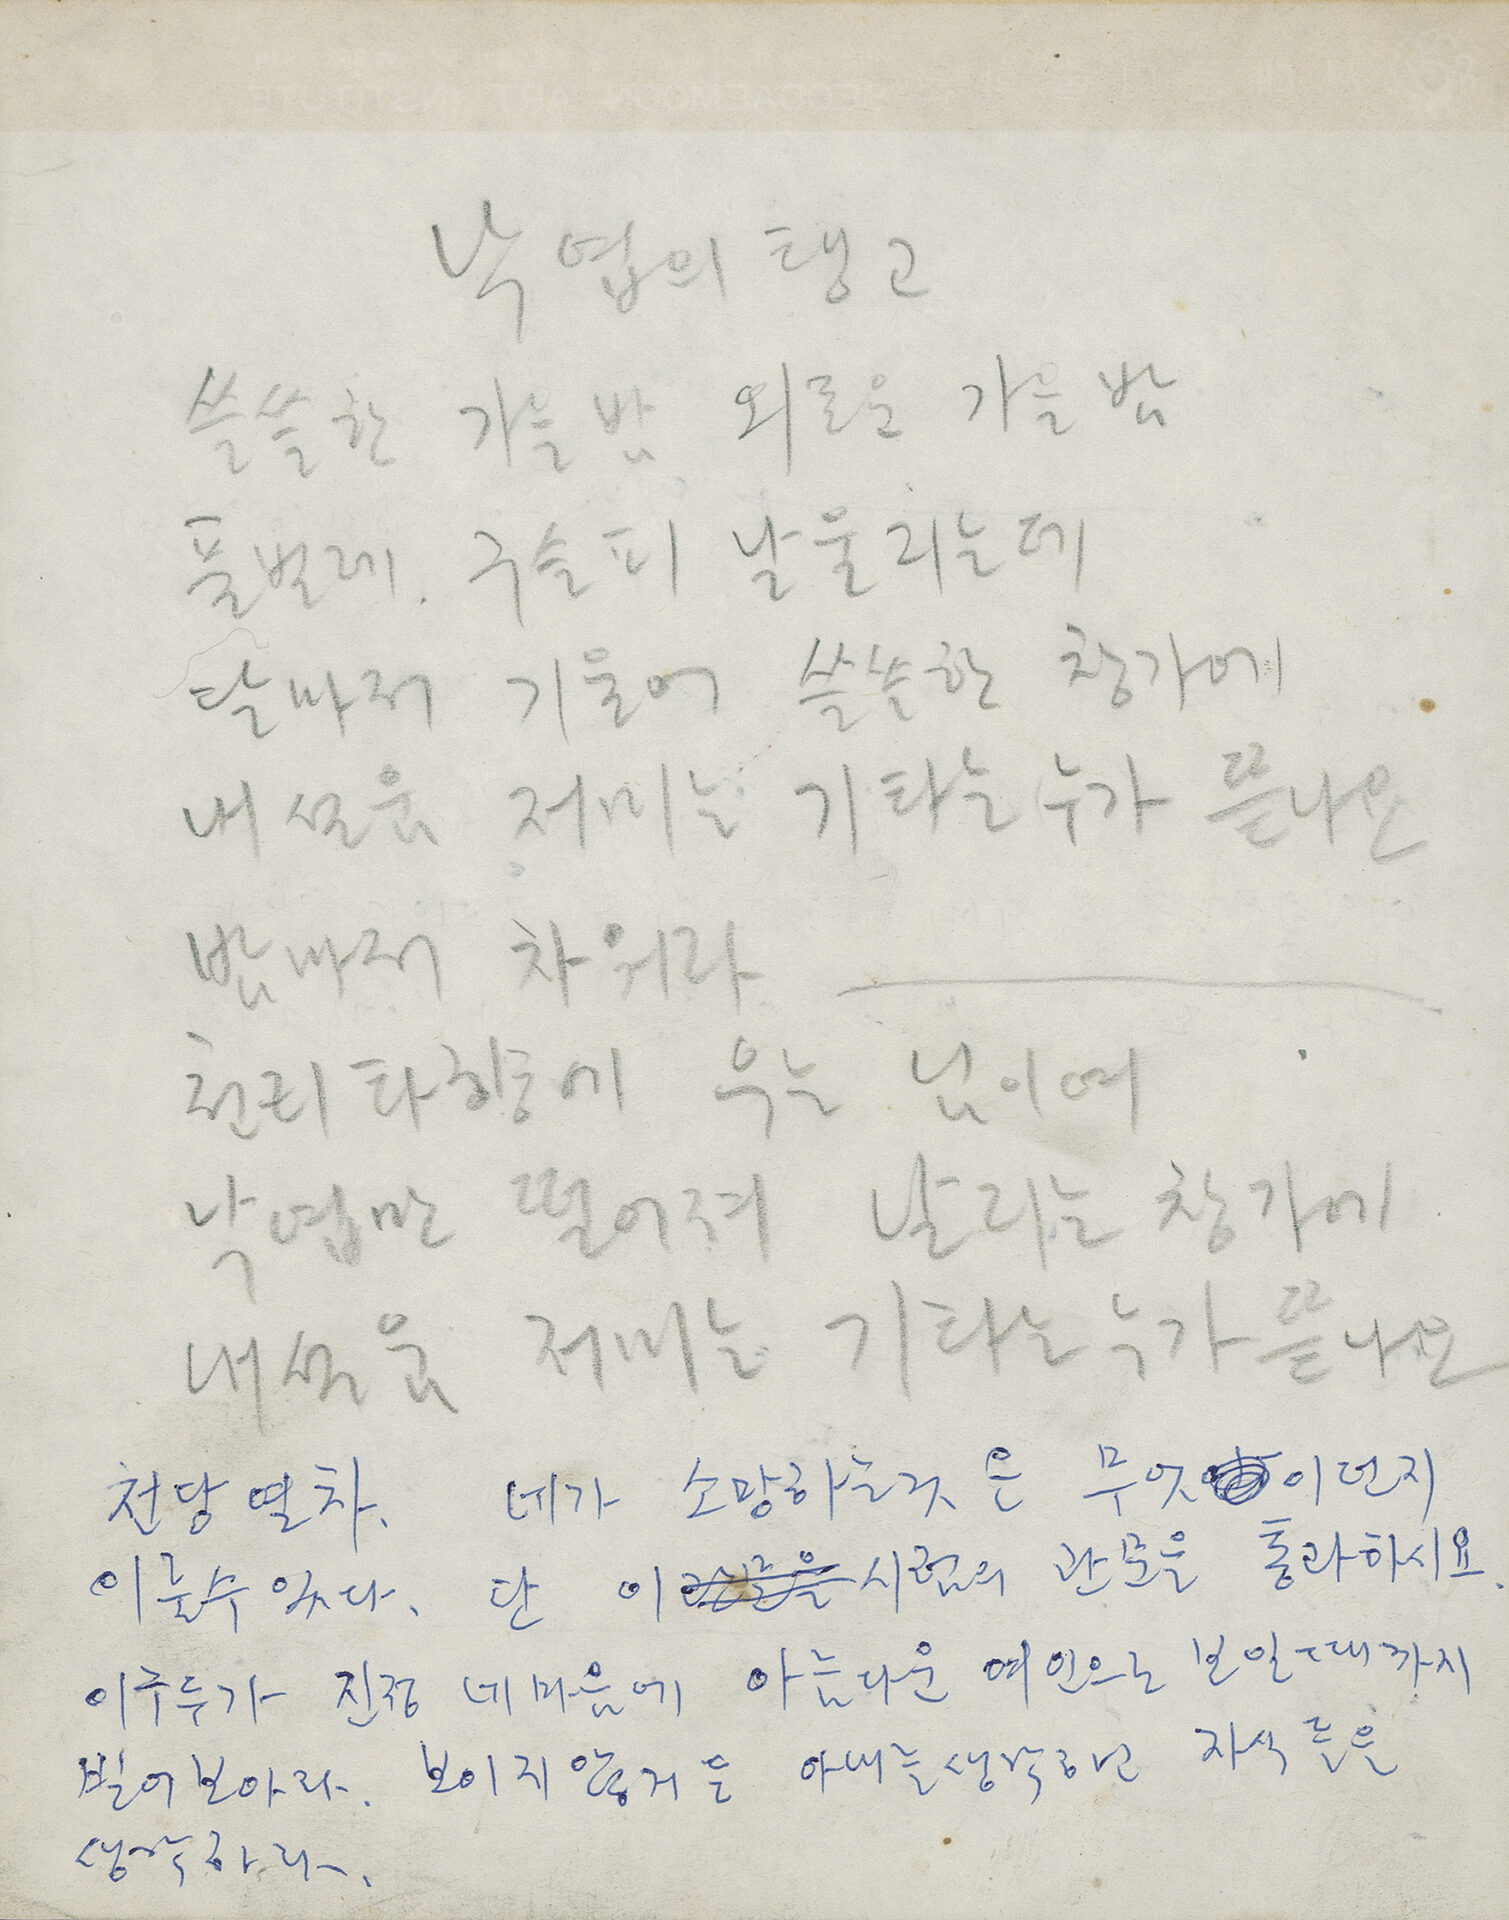 SEODAEMOON ART INSTITUTE
낙엽의 탱고
쓸쓸한 가을밤 외로운 가을밤
풀벌레. 구슬피 날울리는데
달마저 기울어 쓸쓸한 창가에
내설움 저미는 기타는 누가 끝나요
밤마저 차워라
천리타향에 우는 님이여
낙엽만 떨어져 날리는 창가에
내설움 저미는 기타는 누가 끝나요
천당열차. 네가 소망하는것은 무엇이던지
이룰수 있다. 단 이 시련의 관문을 통과하시요.
이구두가 진정 네마음에 아름다운 여인으로 보일때까지
빌어보아라. 보이지않거든 아내를생각하고 자식들을
생각하라.